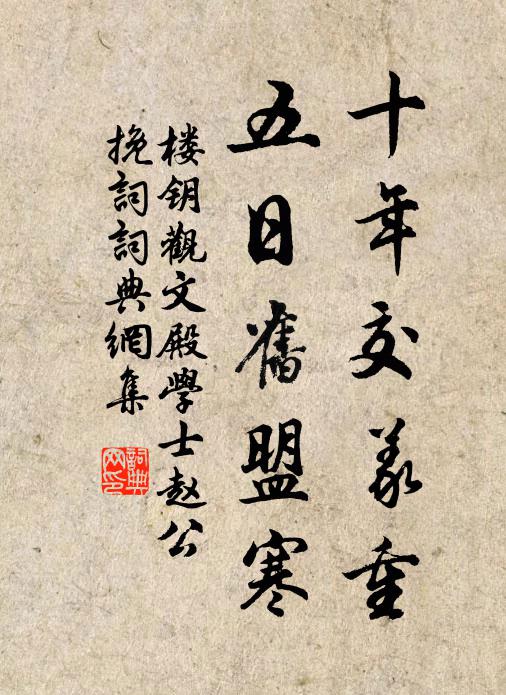 十年交義重
五日舊盟寒
楼钥觀文殿學士赵公
挽詞詞典網集
詞典
网印